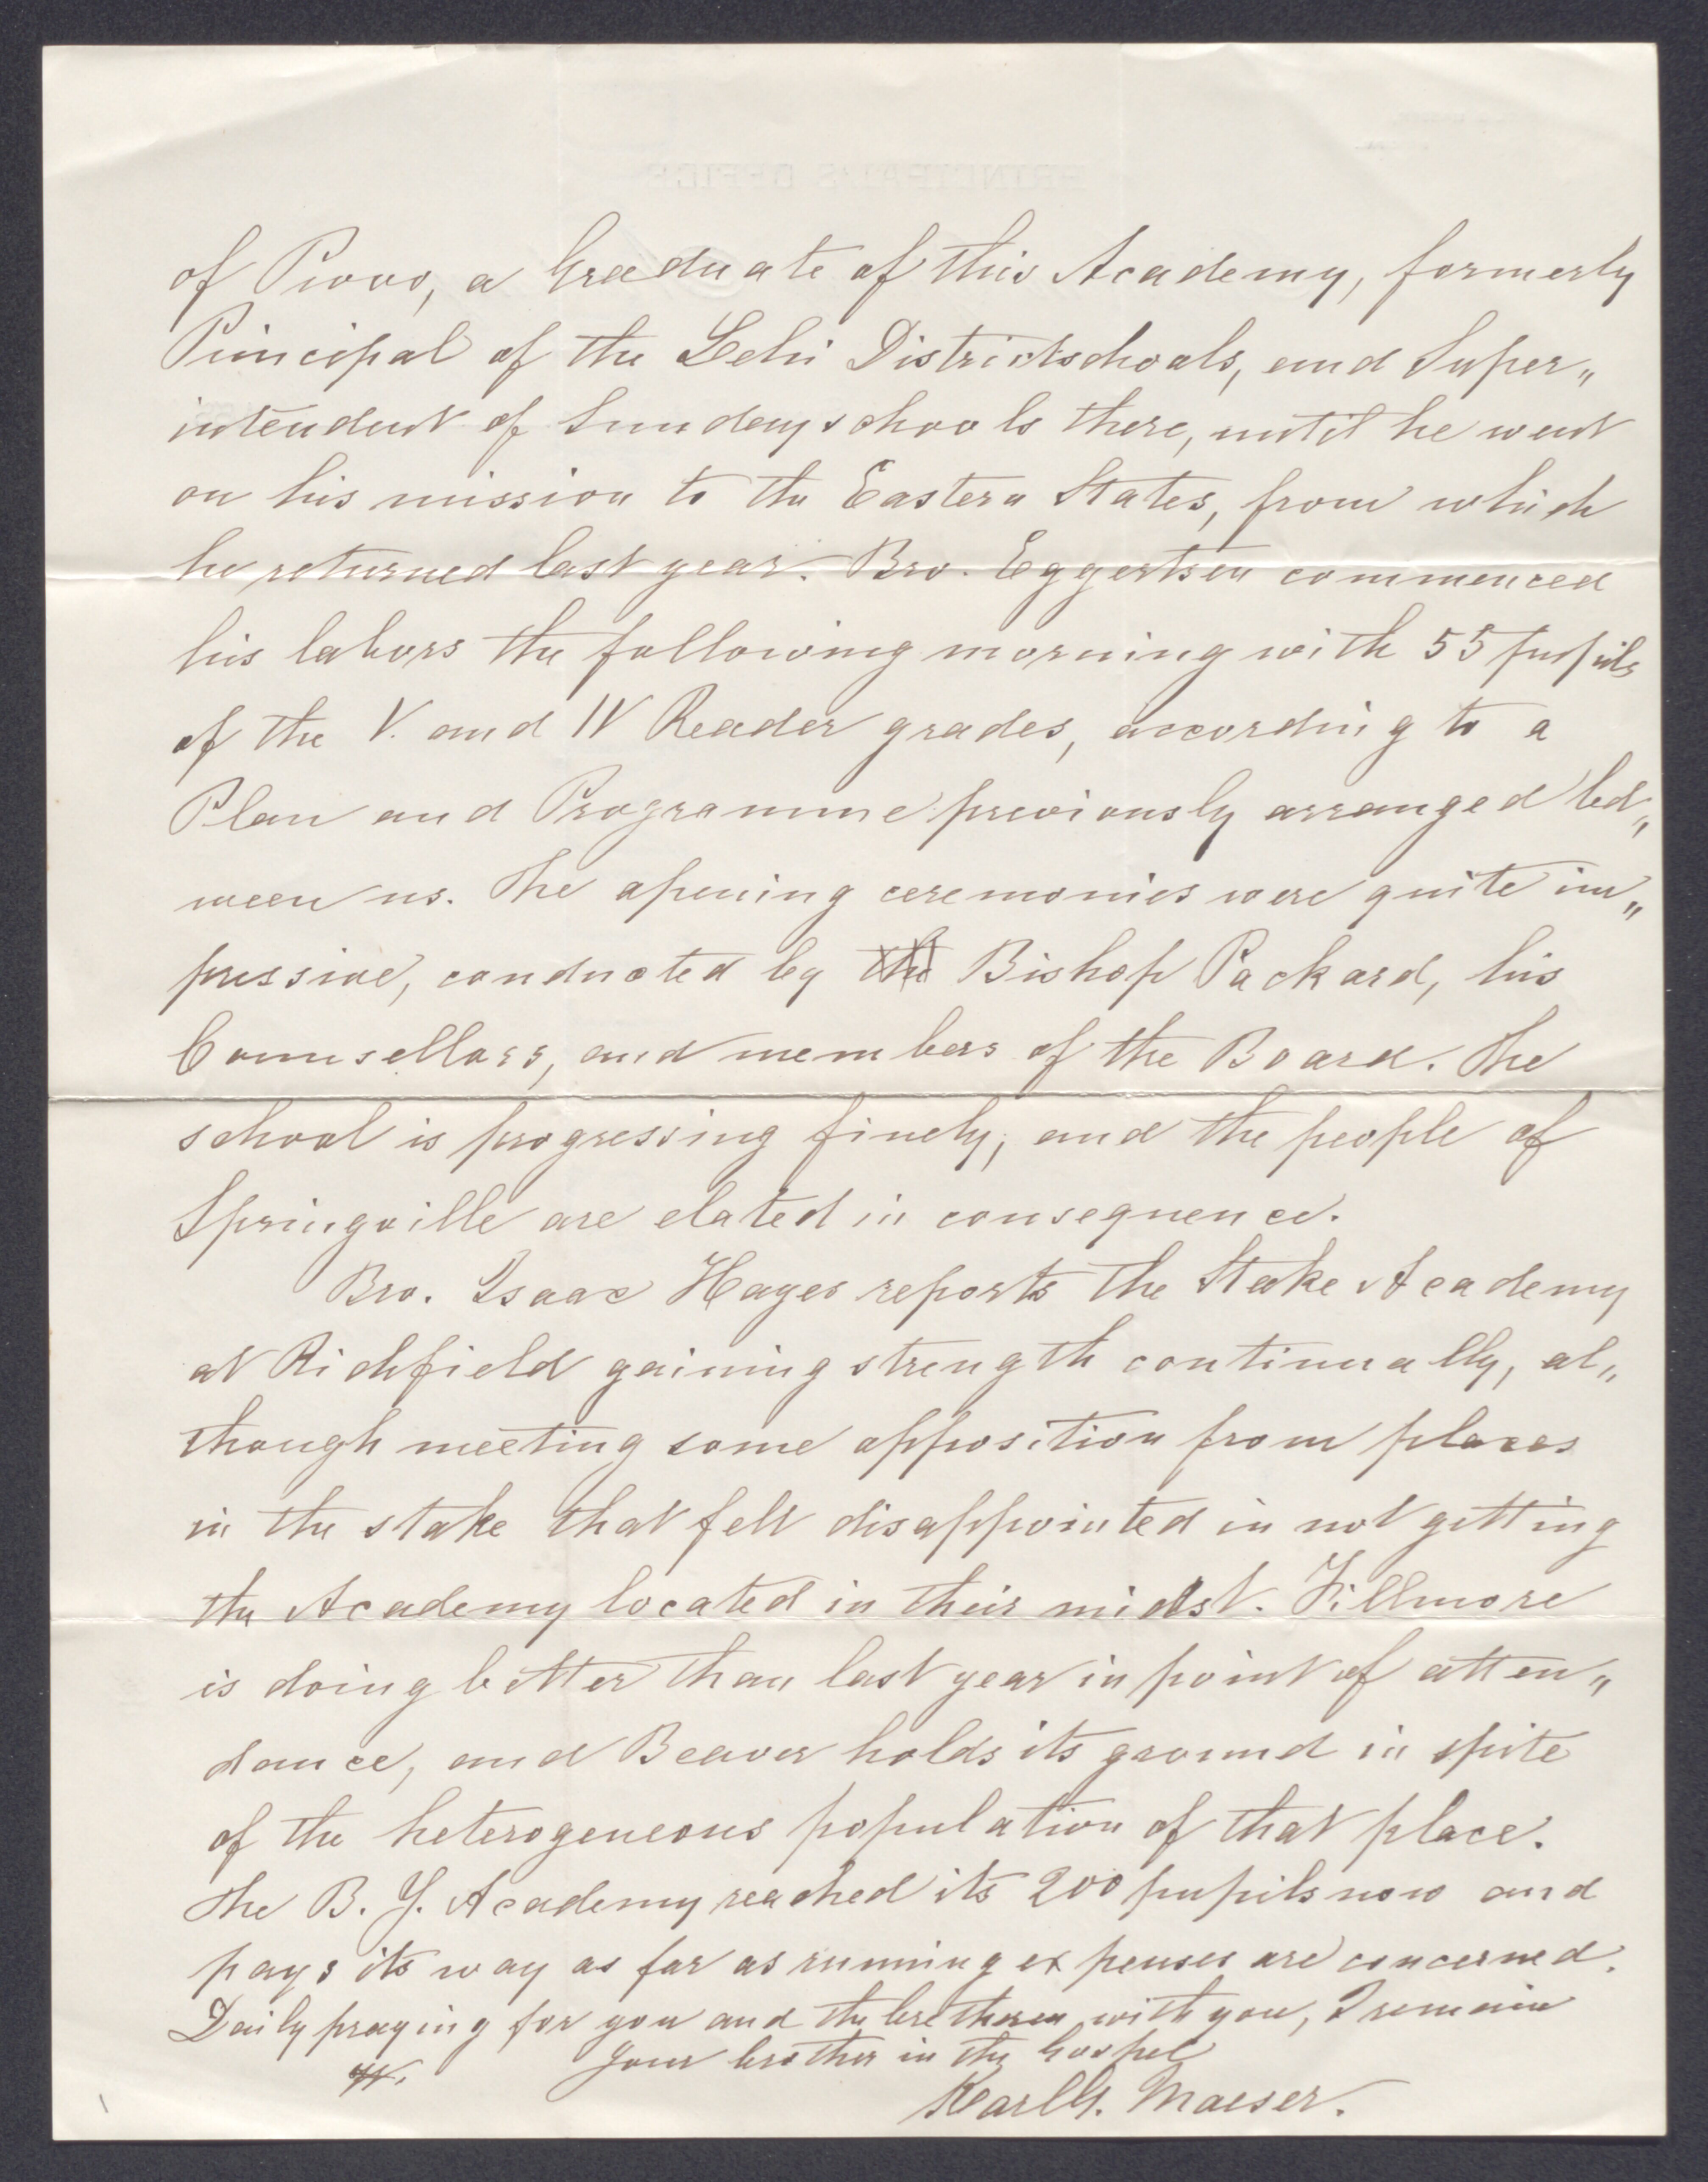 of Provo, a Graduate of this Academy, formerly
Principal of the Lehi Districtschools, and Super„
intendent of Sundayschools there, until he went
on his mission to the Eastern States, from which
he returned last year. Bro. Eggertsen commenced
his labors the following morning with 55 pupils
of the V. and IV Reader grades, according to a
Plan and Programme previously arranged bet„
ween us. The opening ceremonies were quite im„
pressive, conducted by the Bishop Packard, his
Counsellors, and members of the Board. The
school is progressing finely, and the people of
Springville are elated in consequence.
Bro. Isaac Hayes reports the Stake Academy
at Richfield gaining strength continually, al„
though meeting some opposition from places
in the stake that felt disappointed in not getting
the Academy located in their midst. Fillmore
is doing better than last year in point of atten„
dance, and Beaver holds its ground in spite
of the heterogeneous population of that place.
The B. Y. Academy reached its 200 pupils now and
pays its way as far as running expenses are concerned.
Daily praying for you and the brethren with you, I remain
your brother in the Gospel
Karl G. Maeser.